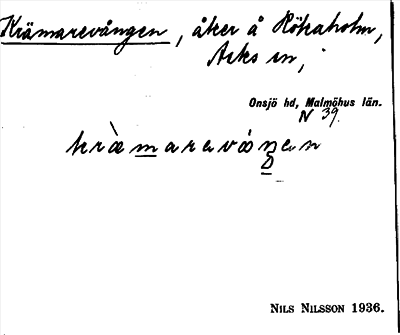 Krämarevången, åker å Hökaholm,
Asks sn,
Onsjö hd, Malmöhus län.
N 39.
kràmarevåŋen
NILS NILSSON 1936.